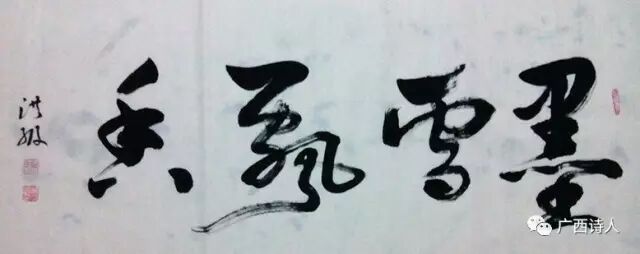 墨雪飘香
洪級
广西诗人